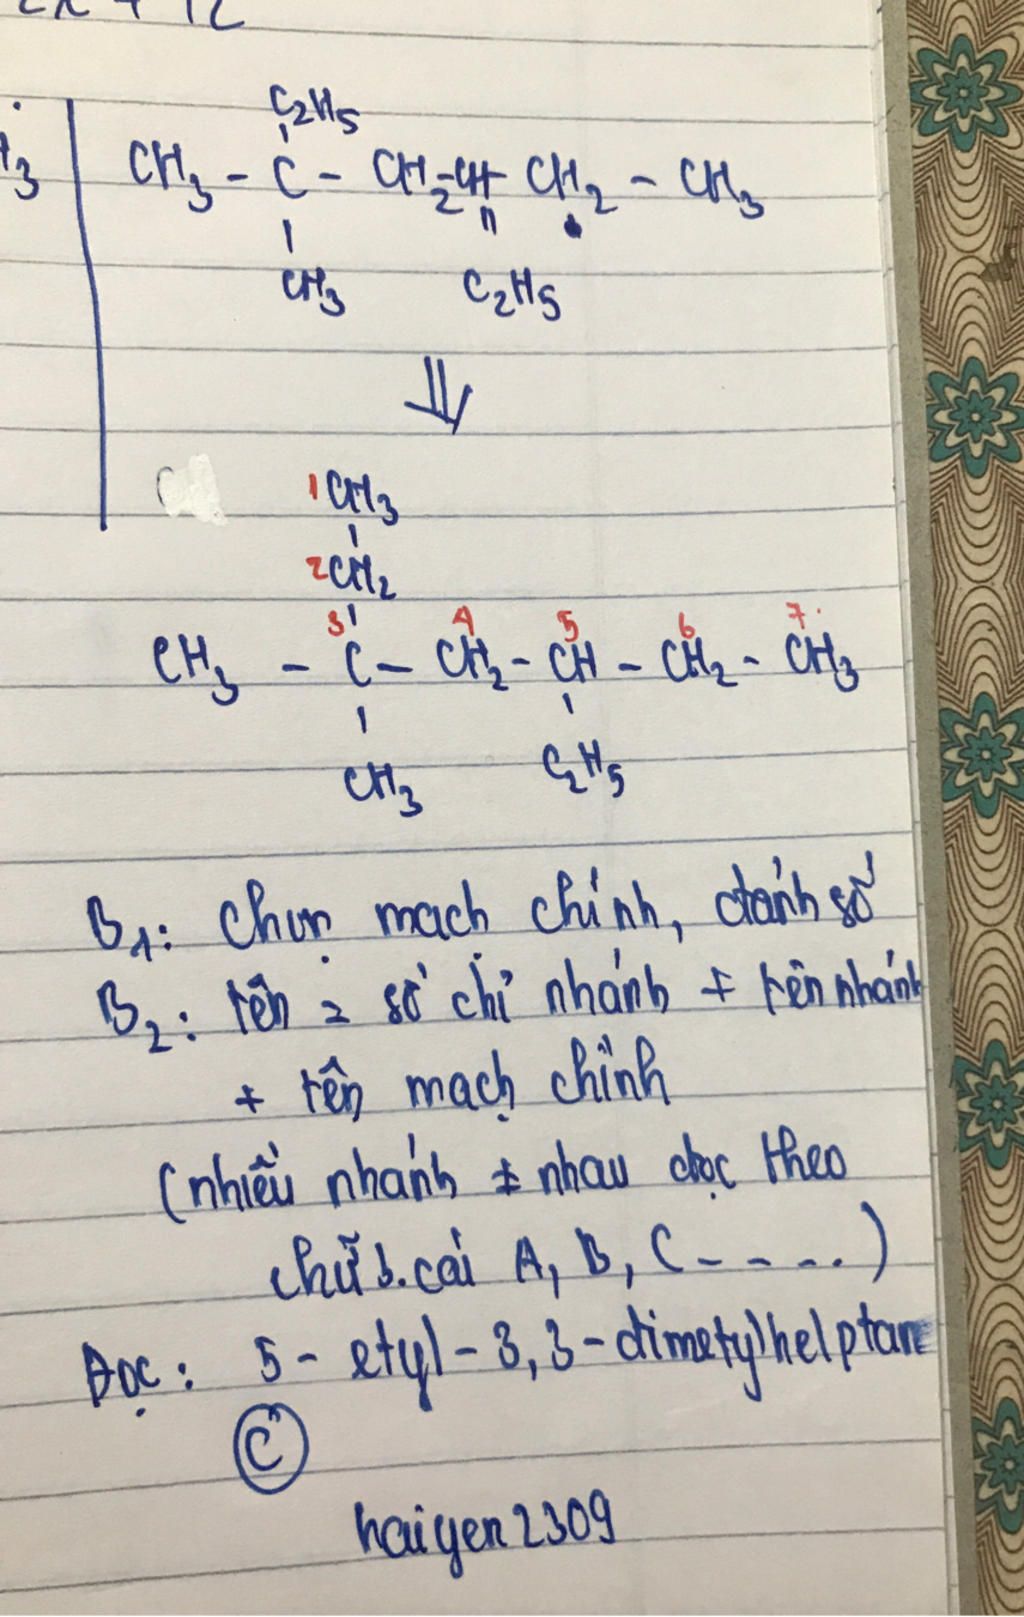 C2H5
CH3 - C - CH2-CH- CH2 - CH3
CH3 C2H5
⇓
1 CH3
2 CH2
3 4 5 6 7
CH3 - C - CH2 - CH - CH2 - CH3
CH3 C2H5
B1: Chọn mạch chính, đánh số
B2: tên = số chỉ nhánh + tên nhánh
+ tên mạch chính
(nhiều nhánh ≠ nhau đọc theo
chữ b.cái A, B, C - - - ..)
Đọc: 5 - etyl - 3,3 - dimetylhelptan
C
haiyen2309